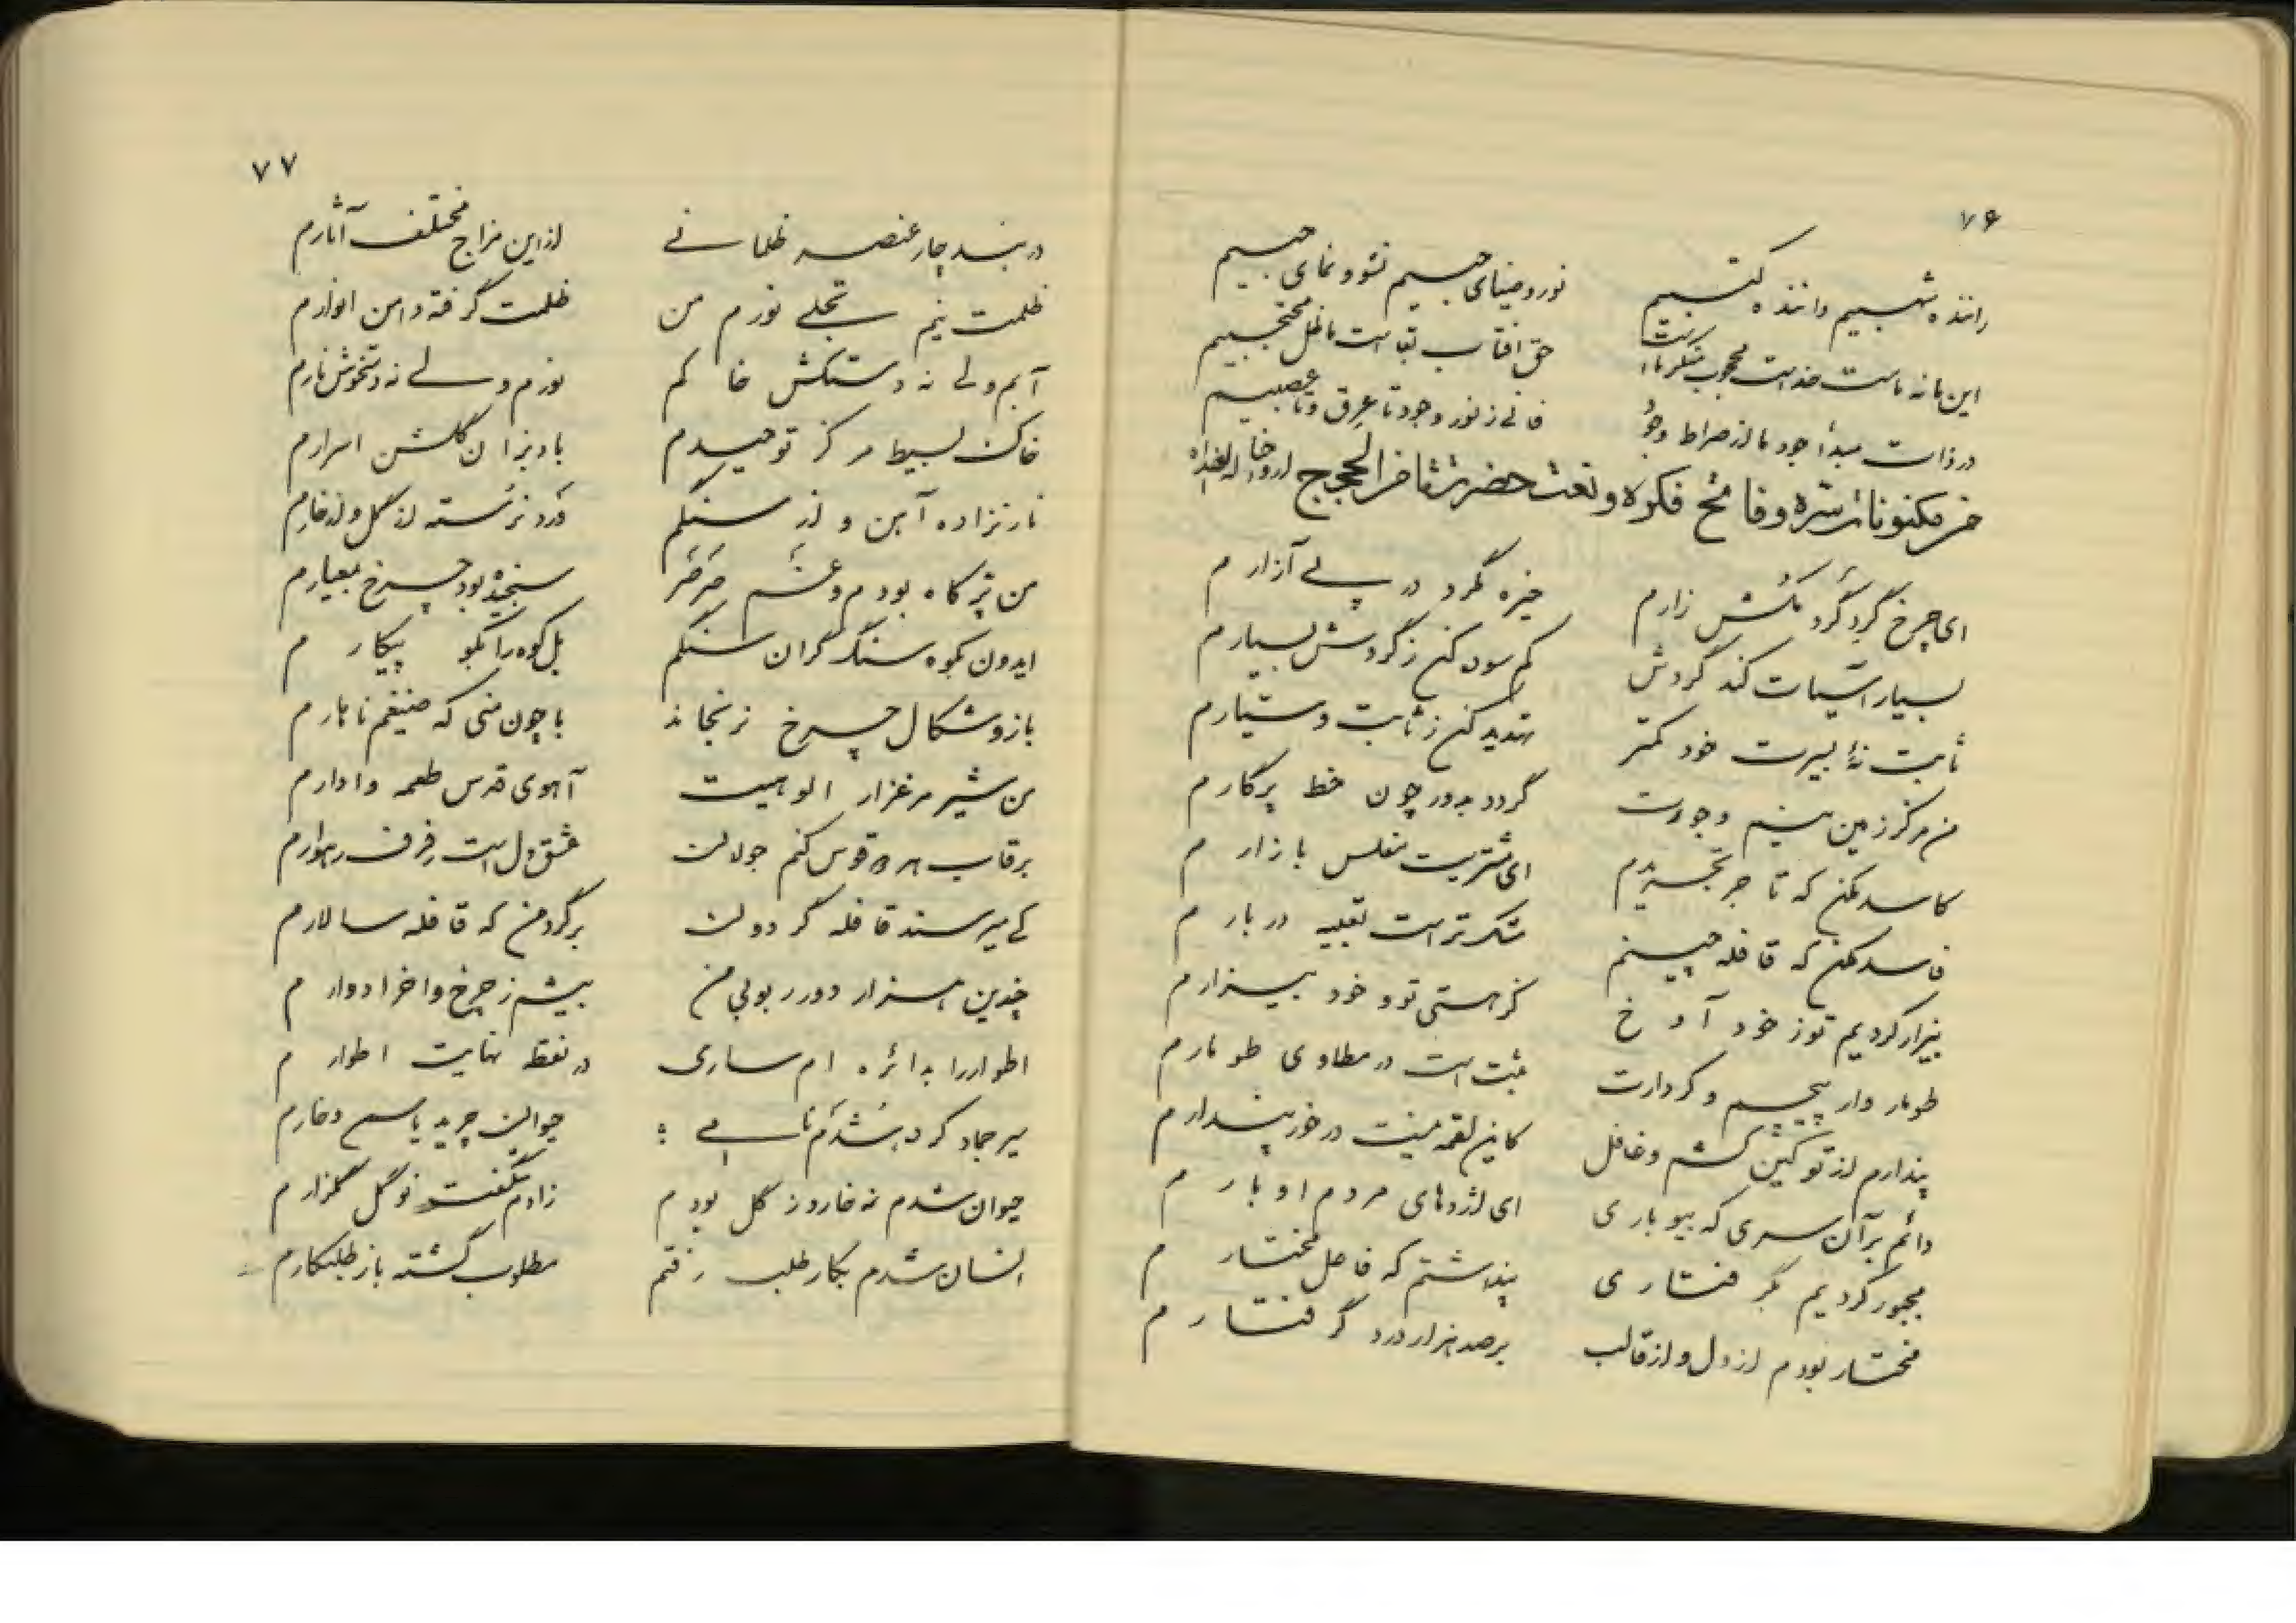 ۷۶
راننده شهبیم داننده کتبیم نور و ضیای حبیم نشو و نمای حبیم
این ما نه ماست خداست محجوب حق افتاب بقا است ما ظل محتجبیم
در ذات مبدأ جود ما از صراط وجود فانی ز نور وجود تا عرق و تا عصبیم
من مکنونات سره و فائح فکره و نعت حضرت
ای چرخ گرد گرد مکش زارم خیره مگرد در پی آزارم
بسیار آسیات کند گردش کم سون کنی ز گردش بسیارم
ثابت نهٔ بسیرت خود کمتر تهدید کنی ز ثابت و سیارم
من مرکز زمین وجودت گردد بدور چون خط پرگارم
کاسد مکن که تاجر تجریدم ای مشتریت مفلس بازارم
فاسد مکن که قافله چینم مشک تر است تعبیه دربارم
بیزار کردیم تو ز خود آوخ کز هستی تو و خود بیزارم
طومار وار پیچم و کردارت ثبت است در مطاوی طومارم
پندارم از تو کین کشم و غافل کاین لقمه نیست در خور پندارم
دائم بر آن سری که بیوباری ای اژدهای مردم اوبارم
مجبور کردیم بگرفتاری پنداشتم که فاعل مختارم
مختار بودم از دل و از قالب بر صد هزار درد گرفتارم
۷۷
در بند چار عنصر ظلمانی از این مزاج مختلف آثارم
ظلمت نیم تجلی نورم من ظلمت گرفته دامن انوارم
آبم ولی نه دستکش خاکم نورم ولی نه دستخوش نارم
خاک بسیط مرکز توحیدم باد بزان گلشن اسرارم
نار نزاده آهن و از سنگم ورد نرسته از گل و از خارم
من پر کاه بودم و غم صرصر سنجیده بود چرخ بمعیارم
ایدون بکوه سنگ گران سنگم بل کوه را بگو پیکارم
بازو شکال چرخ نرنجاند با چون منی که ضیغم ناهارم
من شیر مرغزار الوهیت آهوی قدس طعمه و ادرارم
بر قاب قوس کنم جولان عشق دل است رفرف رهوارم
کی میرسند قافله گردون بر گرد من که قافله سالارم
چندین هزار دور ربوبی من بیشم ز چرخ و اخر ادوارم
اطوار را بدائره ام ساری در نقطه نهایت اطوارم
سیر جماد کرده شدم نامی حیوان چرید یاسم و خارم
حیوان شدم نه خار و نه گل بودم زادم شگفت نو گل گلزارم
انسان شدم بکار طلب رفتم مطلوب گشته باز طلبکارم